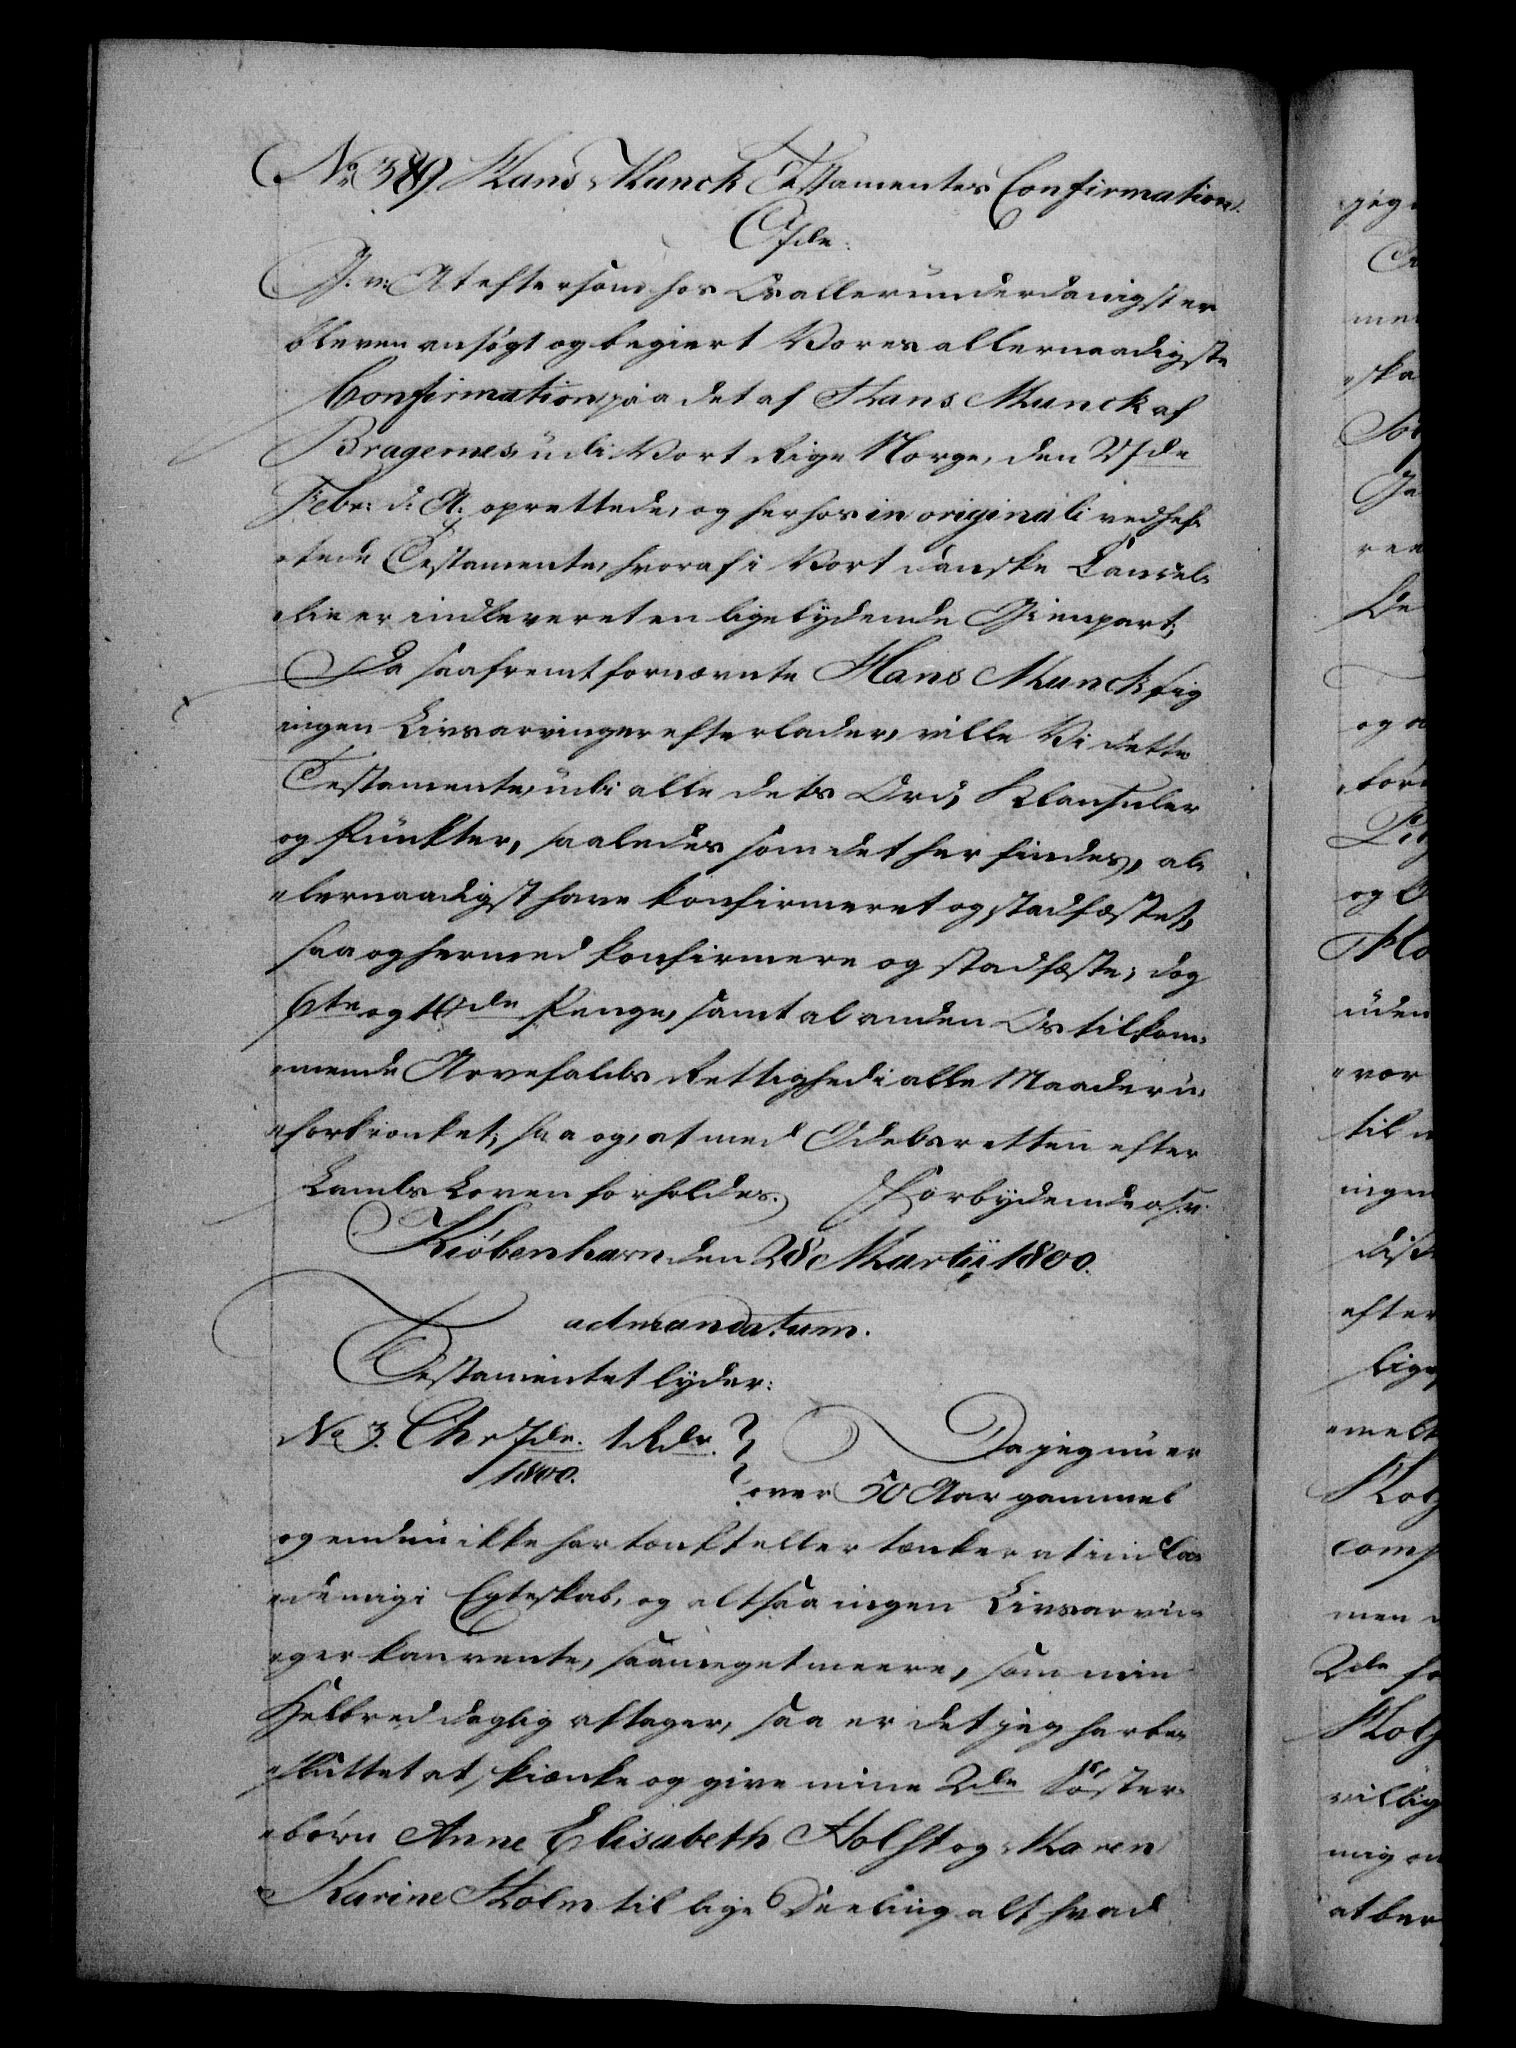 No 389) Hans Munck Testamentes Confirmation.
C 7de.
G. v: At eftersom hos Os allerunderdanigst er
bleven ansøgt og begiert Vores allernaadigste
Confirmation paa det af Hans Munck af
Bragernes udi Vort Rige Norge, den 27de
Febr: d: A: oprettede, og herhos in originali vedhef-
tede Testamente, hvoraf i Vort danske Cancel-
lie er indleveret en ligelydende Gienpart;
Da saafremt fornævnte Hans Munck sig
ingen Livsarvinger efterlader, ville Vi dette
Testamente, udi alle dets Ord, Klausuler
og Punkter, saaledes som det her findes, al-
lernaadigst have konfirmeret og stadfæstet,
saa og hermed konfirmere og stadfæste; dog
6te og 10de Penge, samt al anden Os tilkom-
mende Arvefalds Rettighed i alle Maader u-
forkrænket; saa og, at med Odelsretten efter
Lands Loven forholdes. Forbydende o. s. v.
Kiøbenhavn den 28 Martij 1800.
ad mandatum.
Testamentet lyder:
No 3. Chr 7de. 1 Rdr. Da jeg nu er
1800. over 50 Aar gammel
og endnu ikke har tænkt eller tænker at ind la-
de mig i Egteskab, og altsaa ingen Livsarvin-
ger kan vente, saameget meere, som min
Helbred daglig aftager, saa er det jeg har be-
sluttet at skienke og give mine 2de Søster-
børn Anne Elisabeth Holst og Maren
Karine Holm til lige Deeling alt hvad